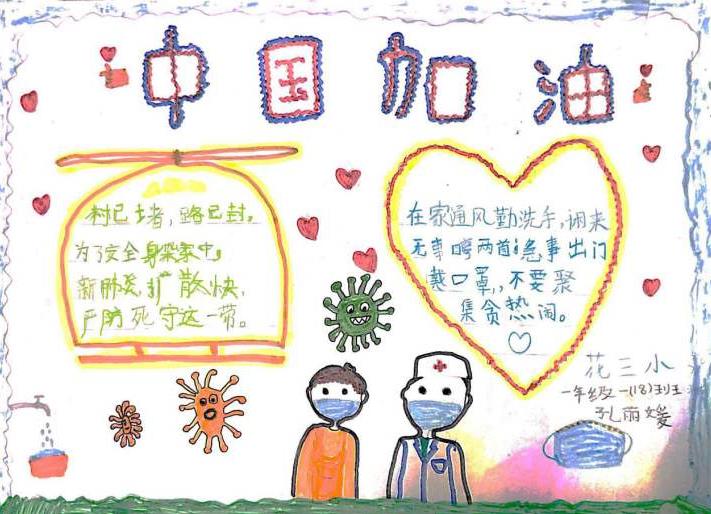 中国加油
村已堵,路已封,
为了安全身家中,
新肺炎扩散快,
严防死守这一带。
在家通风勤洗手,闲来
无事哼两首;急事出门
戴口罩,不要聚
集贪热闹。
花三小
一年级一(18)班
孔丽媛